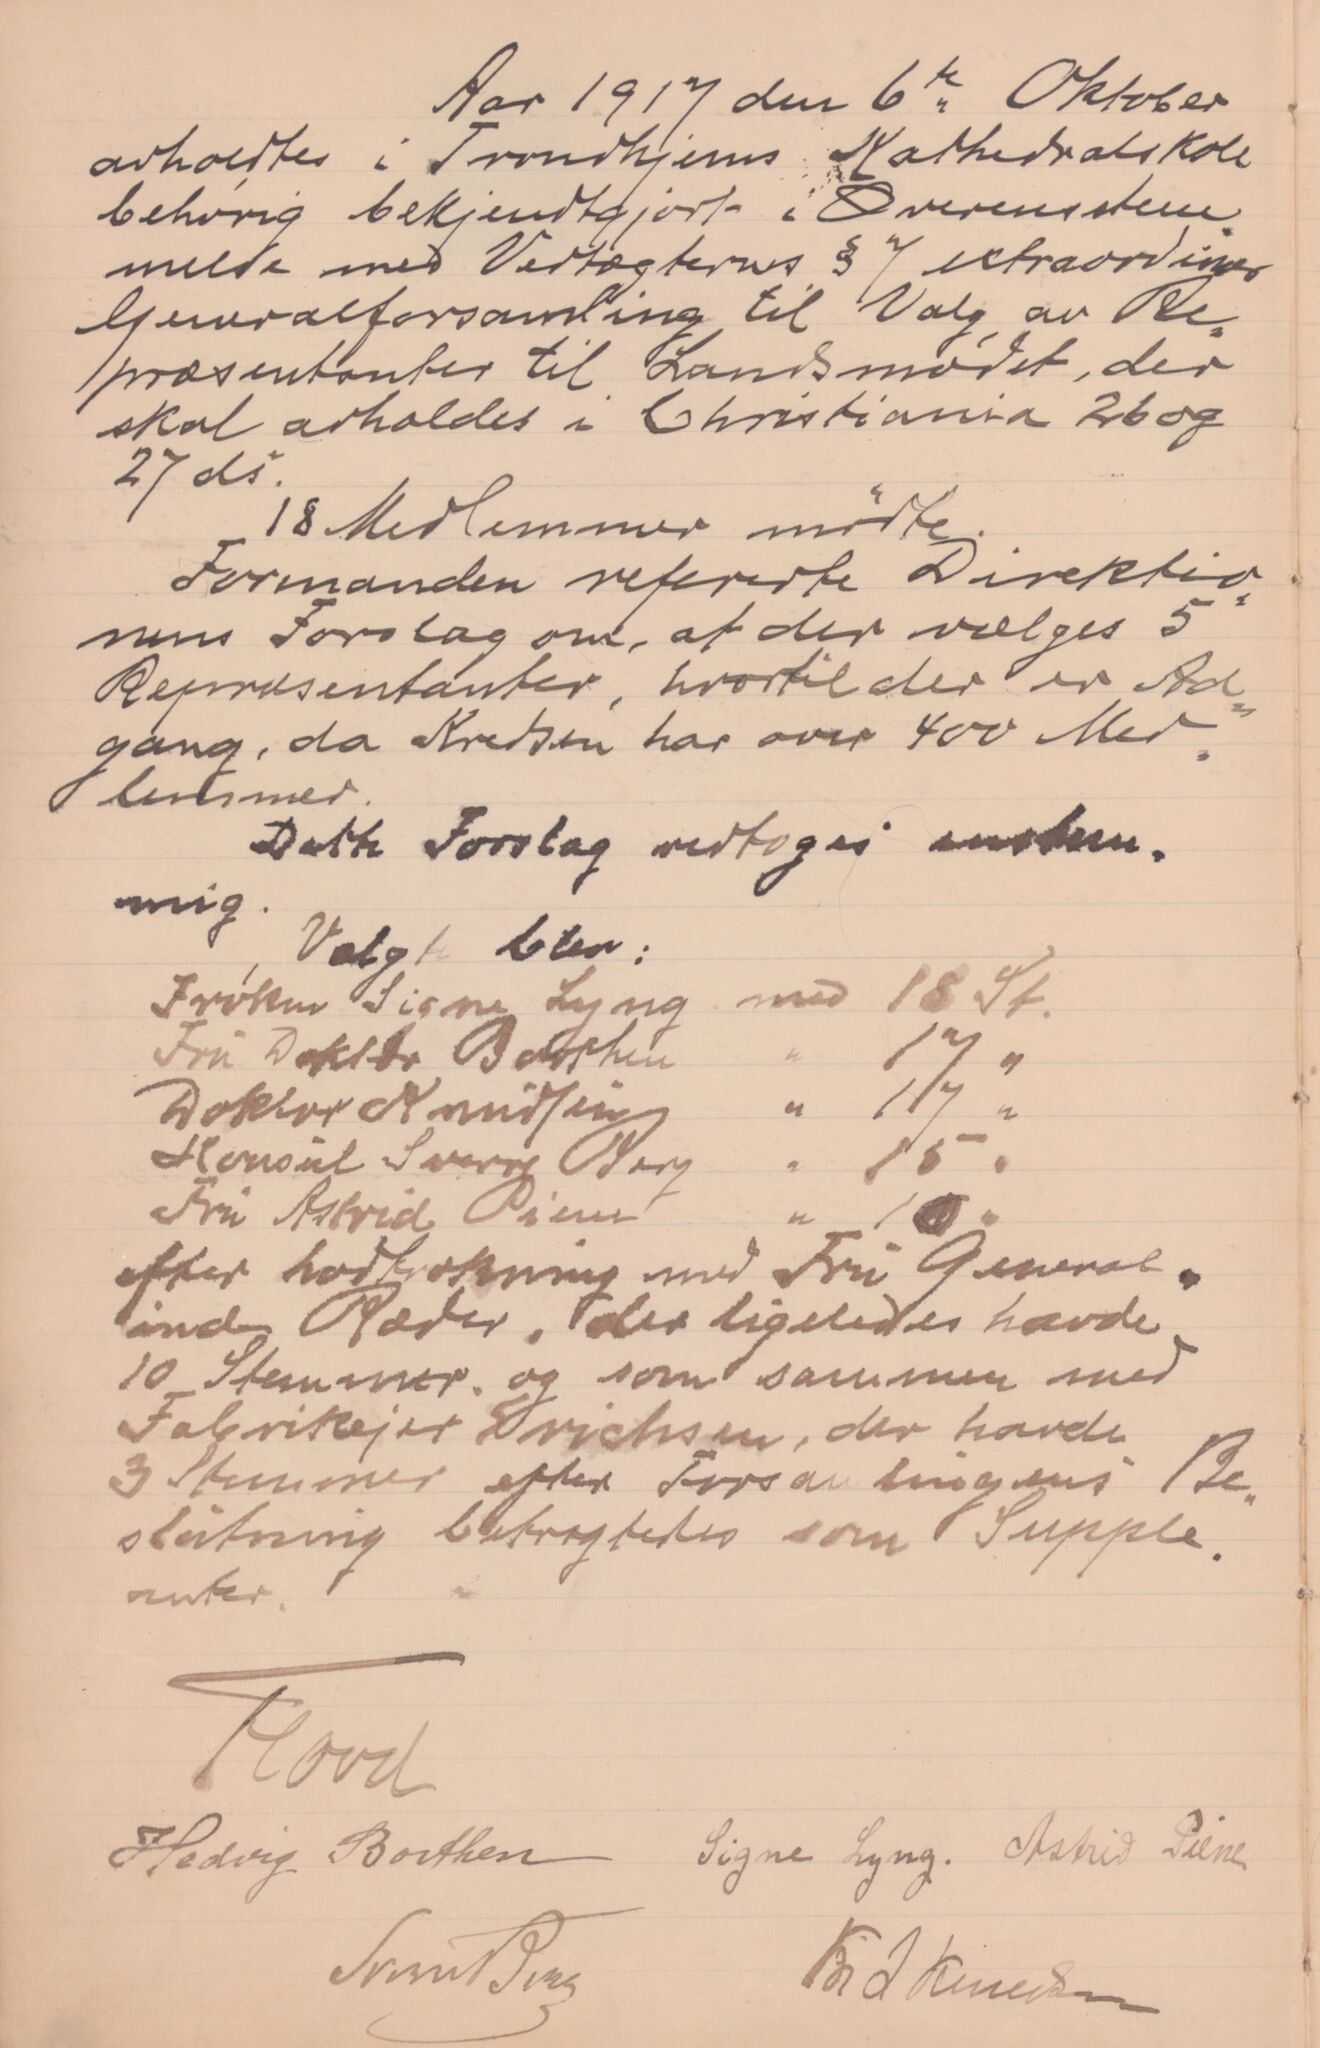 Aar 1917 den 6te Oktober
avholdtes i Trondhjems Kathedralskole
behörig bekjendtgjort i Overensstem„
melse med Vedtægternes § 7 extraordinær
Generalforsamling til Valg av Re„
præsentanter til Landsmødet, der
skal avholdes i Christiania 26 og
27 ds.
18 Medlemmer mödte.
Formanden refererte Direktio„
nens Forslag om, at der vælges 5
Repræsentanter, hvortil der er Ad„
gang, da Kredsen har over 400 Med„
lemmer.
Dette Forslag vedtoges enstem„
mig.
Valgte blev:
Fröken Signe Lyng med 18 St.
Fru Doktor Borthen „ 17 „
Doktor Knudsen „ 17 „
Konsul Sverre Berg „ 15 „
Fru Astrid Piene „ 10 „
efter lodtrækning med Fru General„
inde Ræder, der ligeledes havde
10 Stemmer og som sammen med
Fabrikejer Erichsen, der havde
3 Stemmer efter Forsamlingens Be„
slutning betragtedes som Supple„
anter.
Flood
Hedvig Borthen Signe Lyng. Astrid Piene
Sverre Berg